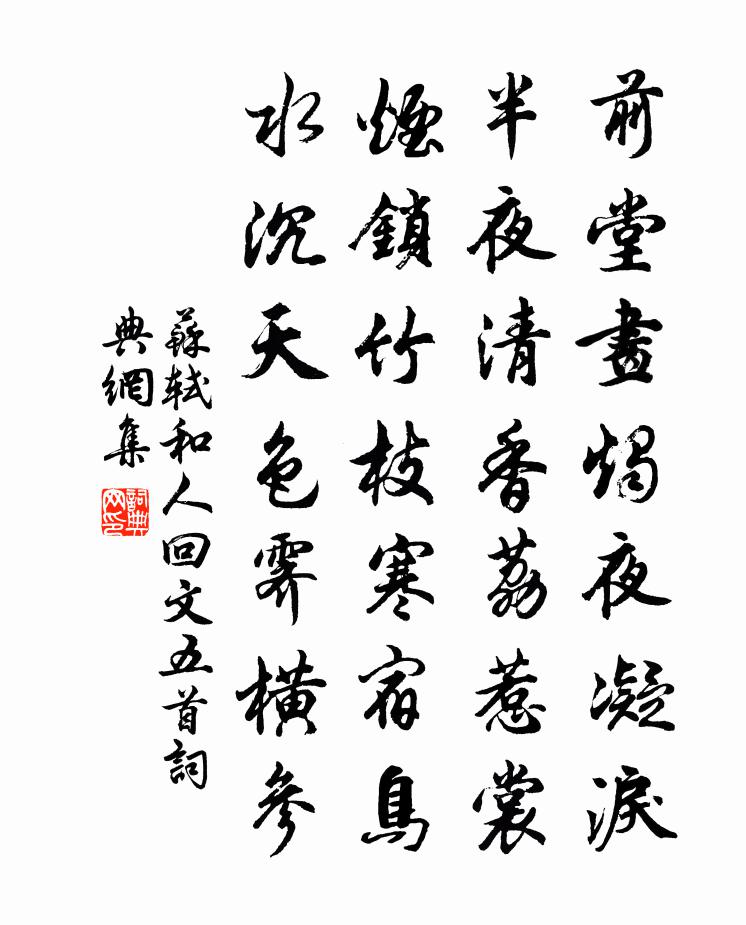 前堂畫燭夜凝淚
半夜清香荔惹裳
煙鎖竹枝寒宿鳥
水沉天色霽橫參
蘇軾和人回文五首詞
典網集
詞典網印